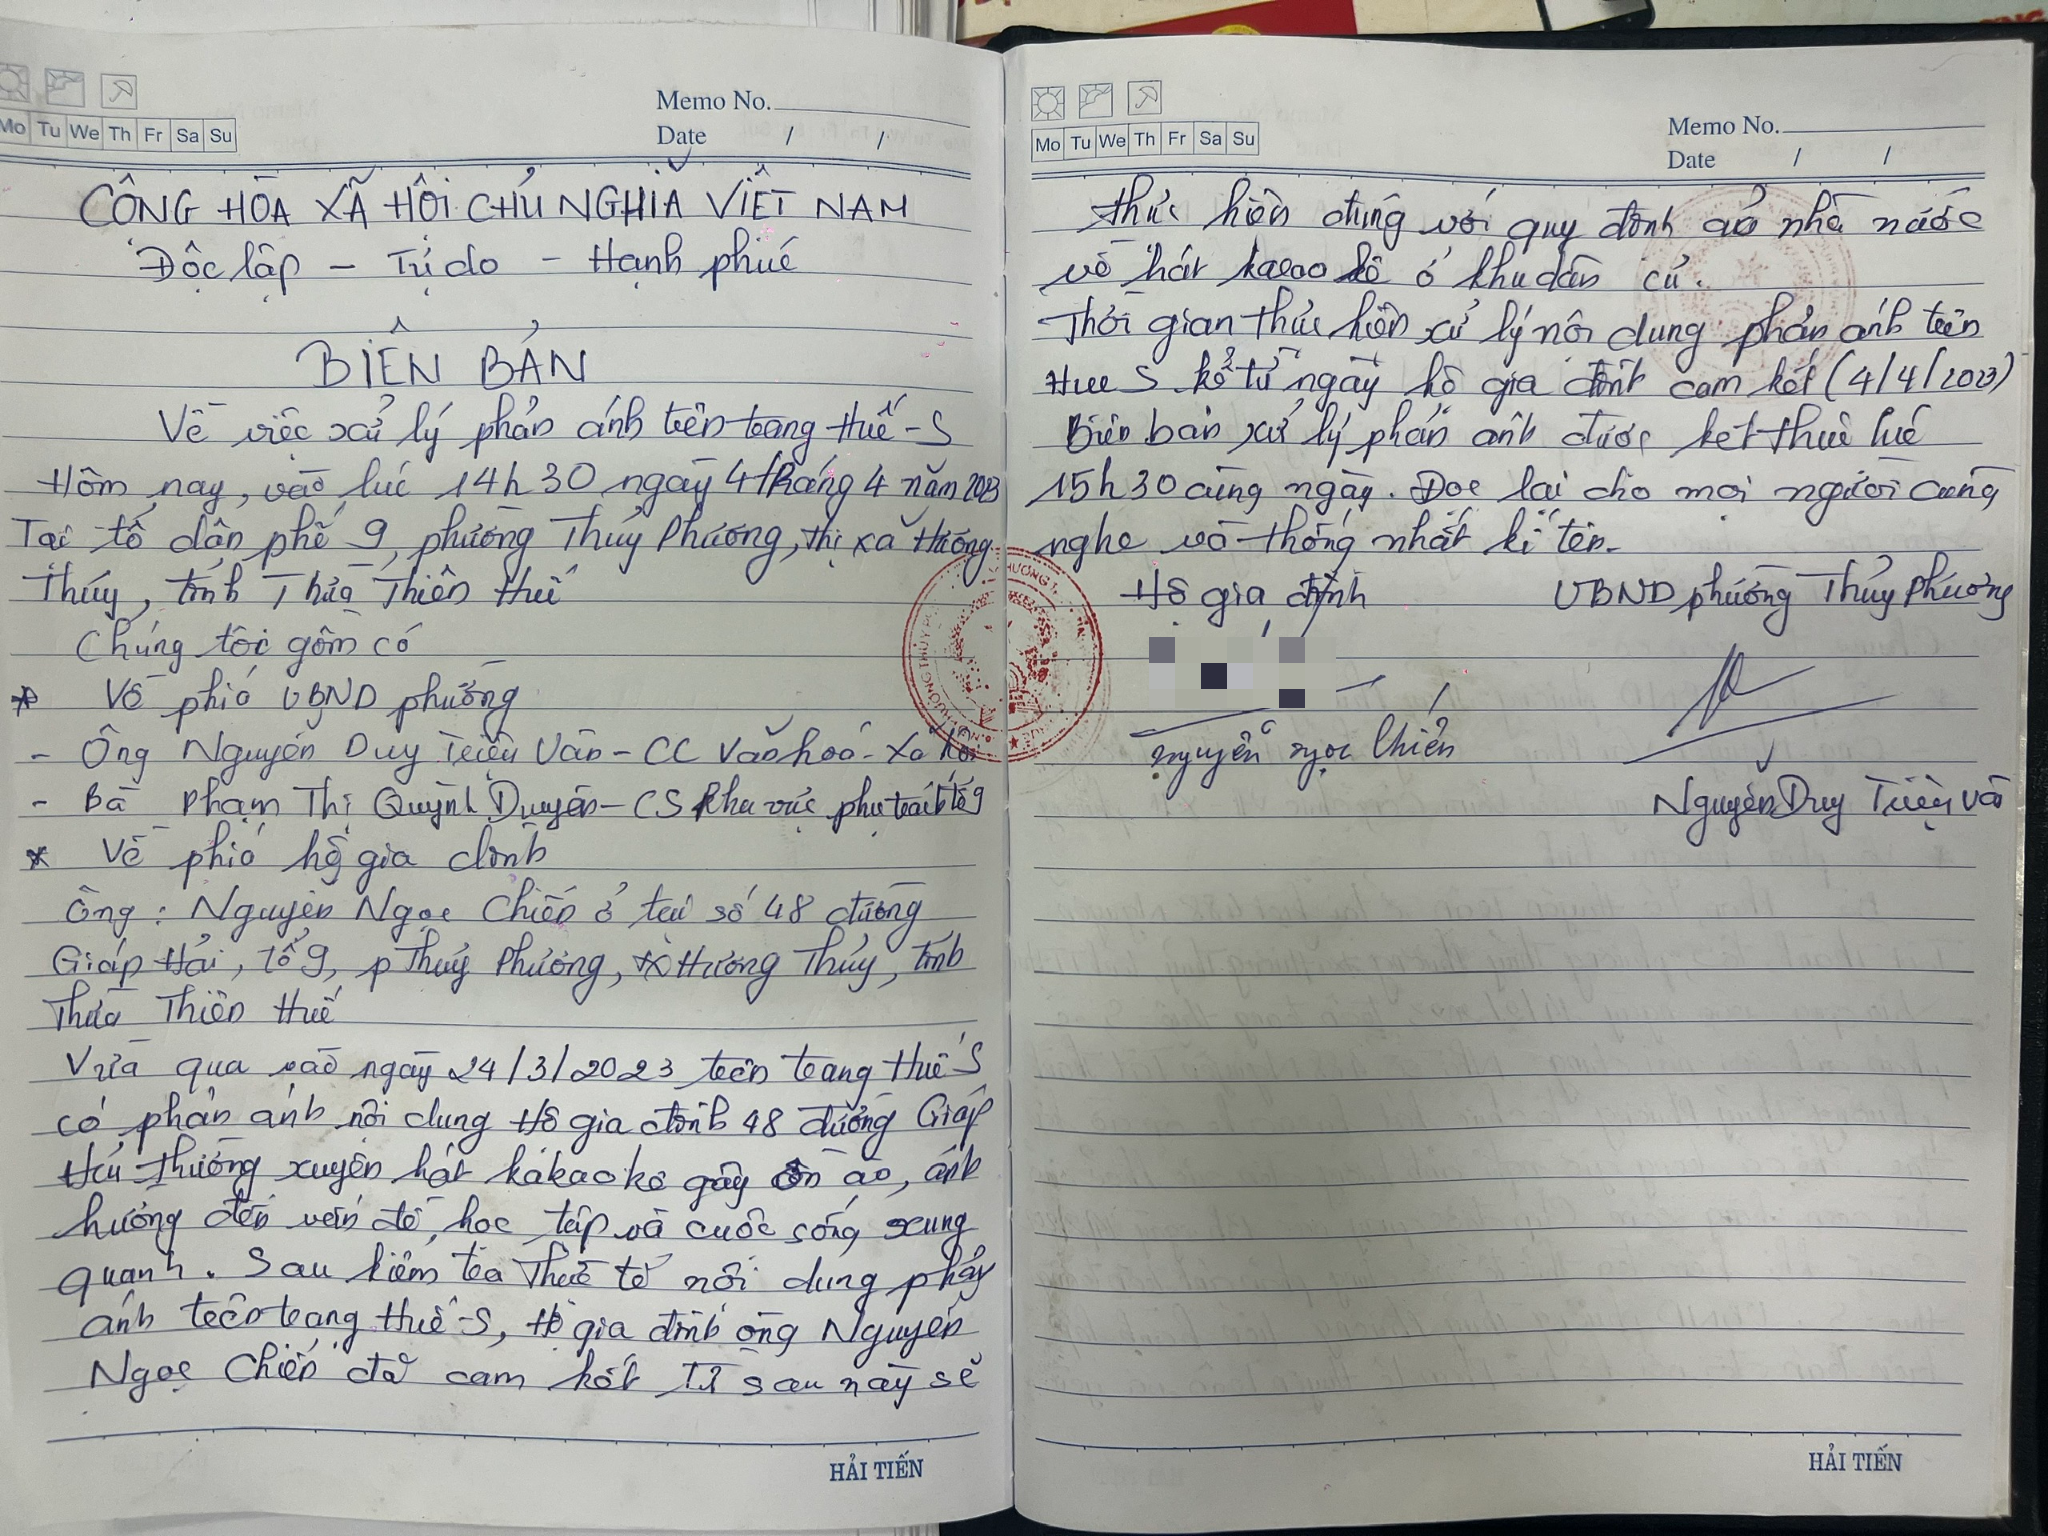 Mo Tu We Th Fr Sa Su
Memo No.
Date / /
CỘNG HÒA XÃ HỘI CHỦ NGHĨA VIỆT NAM
Độc lập - Tự do - Hạnh phúc
BIÊN BẢN
Về việc xử lý phản ánh trên trang Huế-S
Hôm nay, vào lúc 14h30 ngày 4 tháng 4 năm 2023
Tại tổ dân phố 9, phường Thủy Phương, thị xã Hương
Thủy, tỉnh Thừa Thiên Huế
Chúng tôi gồm có
* Về phía UBND phường
- Ông Nguyễn Duy Triệu Vân - CC Văn hoá - Xã hội
- Bà Phạm Thị Quỳnh Duyên - CS Khu vực phụ trách tổ 9
* Về phía hộ gia đình
Ông: Nguyễn Ngọc Chiến ở tại số 48 đường
Giáp Hải, tổ 9, p Thủy Phương, tx Hương Thủy, tỉnh
Thừa Thiên Huế
Vừa qua vào ngày 24/3/2023 trên trang Huế S
có phản ánh nội dung Hộ gia đình 48 đường Giáp
Hải thường xuyên hát kakaoke gây ồn ào, ảnh
hưởng đến vấn đề học tập và cuộc sống xung
quanh. Sau kiểm tra thực tế nội dung phản
ánh trên trang Huế-S, Hộ gia đình ông Nguyễn
Ngọc Chiến đã cam kết Từ sau này sẽ
HẢI TIẾN
Mo Tu We Th Fr Sa Su
Memo No.
Date / /
thực hiện đúng với quy định của nhà nước
về hát karaokê ở khu dân cư.
Thời gian thực hiện xử lý nội dung phản ánh trên
Hue S kể từ ngày hộ gia đình cam kết (4/4/2023)
Biên bản xử lý phản ánh được kết thúc lúc
15h30 cùng ngày. Đọc lại cho mọi người cùng
nghe và thống nhất kí tên.
Hộ gia đình UBND phường Thủy Phương
Nguyễn Ngọc Chiến
Nguyễn Duy Triệu Vân
HẢI TIẾN